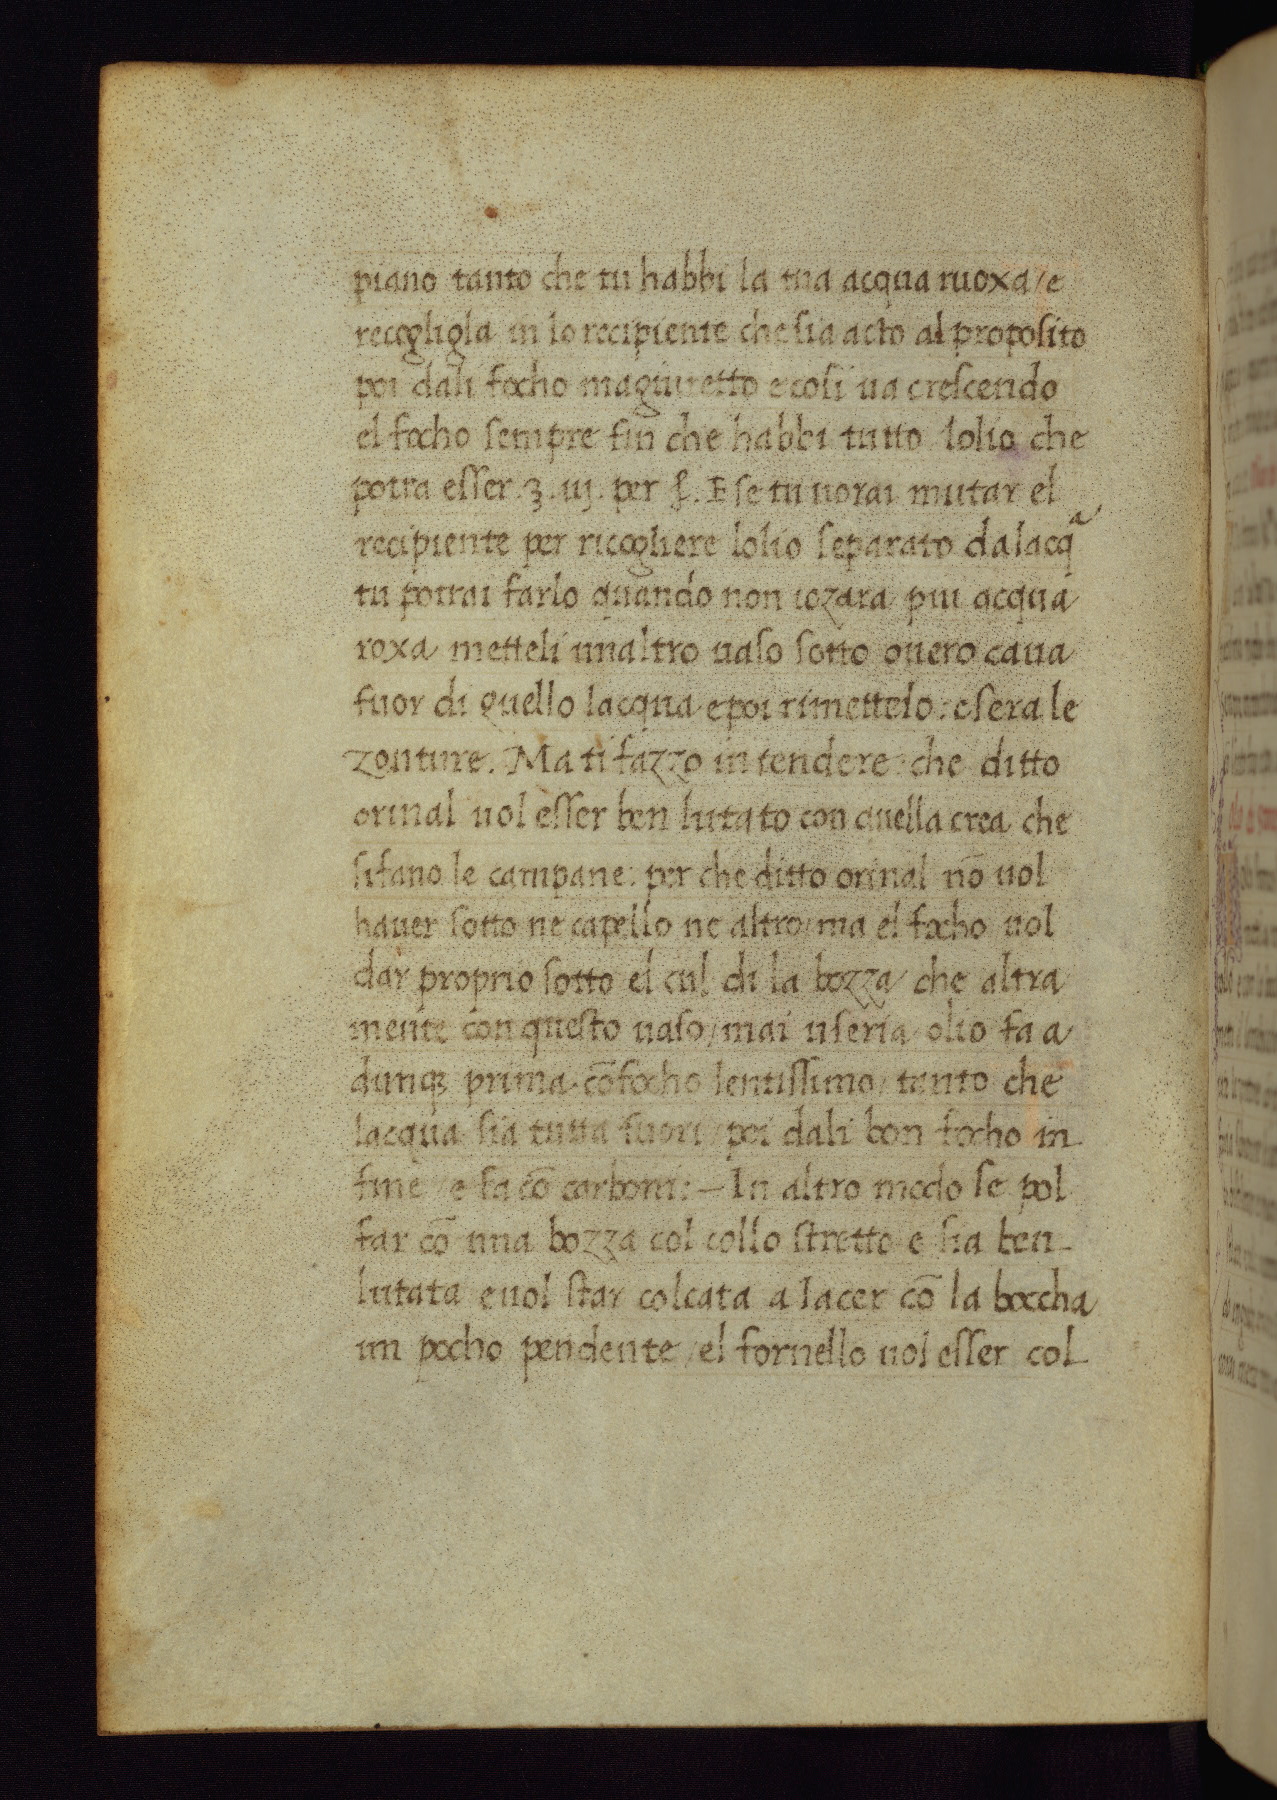 piano tanto che tu habbi la tua acqua ruoxa / e
recogligla in lo recipiente che sia acto al proposito
poi dali focho magiuretto e cosi ua crescendo
el focho sempre fin che habbi tutto lolio che
potra esser .ʒ. iij. per £. E se tu uorai mutar el
recipiente per ricogliere lolio separato da lacqᵃ
tu potrai farlo quando non iozara piu acqua
roxa metteli unaltro uaso sotto ouero caua
fuor di quello lacqua e poi rimettelo: e sera le
zonture. Ma ti fazzo intendere che ditto
orinal uol esser ben lutato con quella crea che
si fano le campane. per che ditto orinal nō uol
hauer sotto ne capello ne altro / ma el focho uol
dar proprio sotto el cul di la bozza che altra
mente con questo uaso / mai useria olio fa a
dunqꝫ prima cō focho lentissimo / tanto che
lacqua sia tutta fuori / poi dali bon focho in
fine / e fa cō carboni: – In altro modo se pol
far cō una bozza col collo stretto e sia ben
lutata e uol star colcata a Iacer cō la boccha
un pocho pendente / el fornello uol esser col-